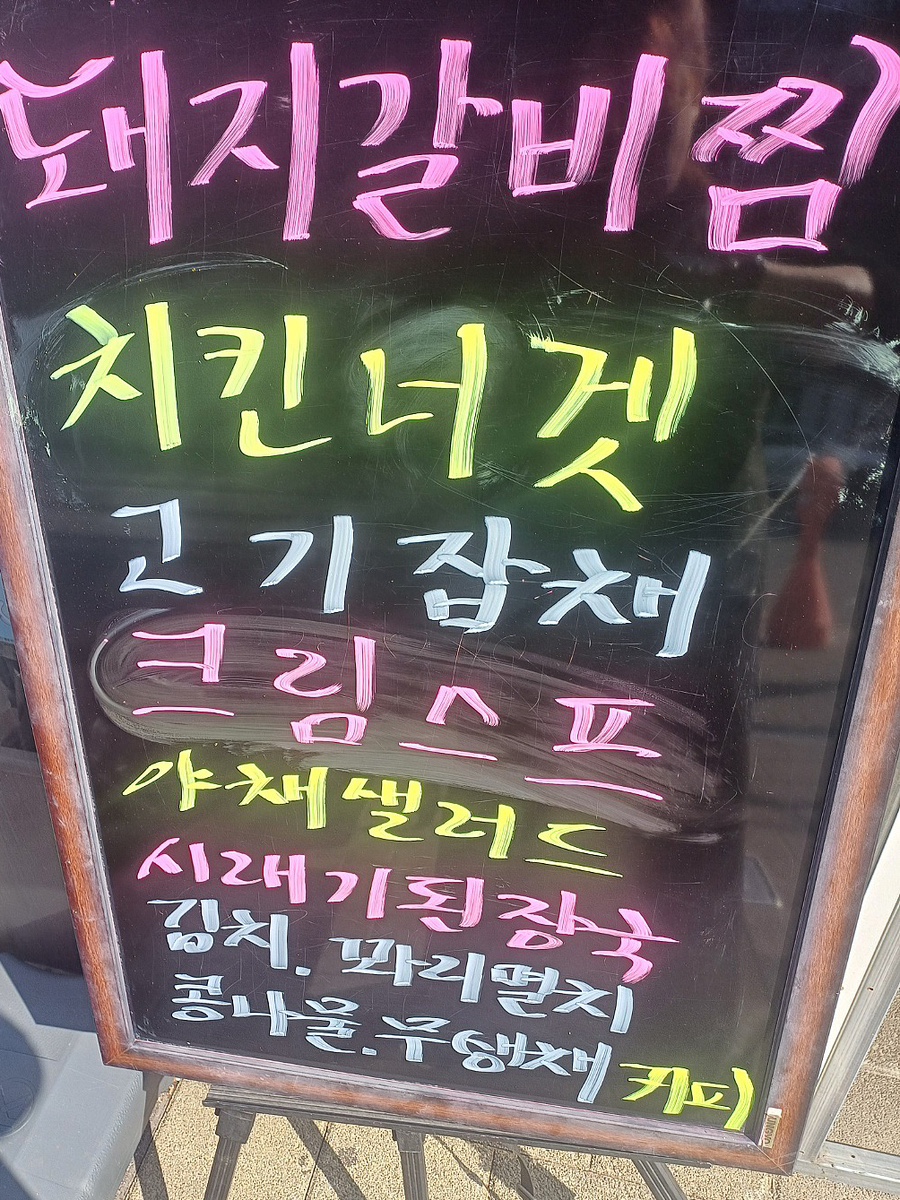 돼지갈비찜
치킨너겟
고기잡채
크림스프
야채샐러드
시래기된장국
김치. 꽈리멸치
콩나물.무생채 커피